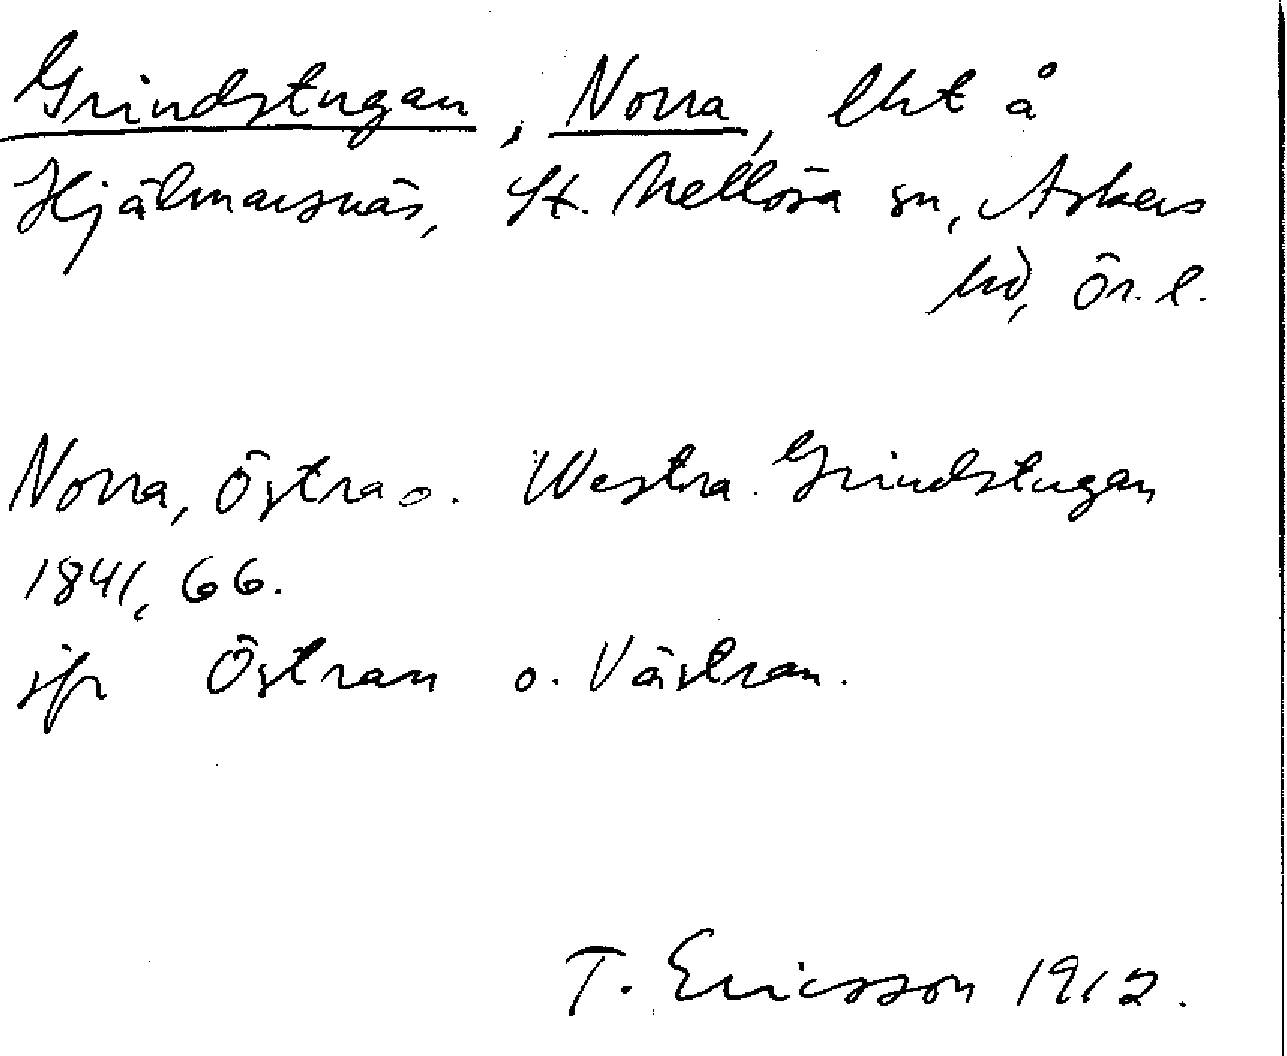 Grindstugan, Norra, lht å
Hjälmarsnäs, St. Mellösa sn, Askers
hd, Ör. l.
Norra, Östra o. Westra Grindstugan
1841, 66.
jfr Östran o. Västran.
T. Ericsson 1912.